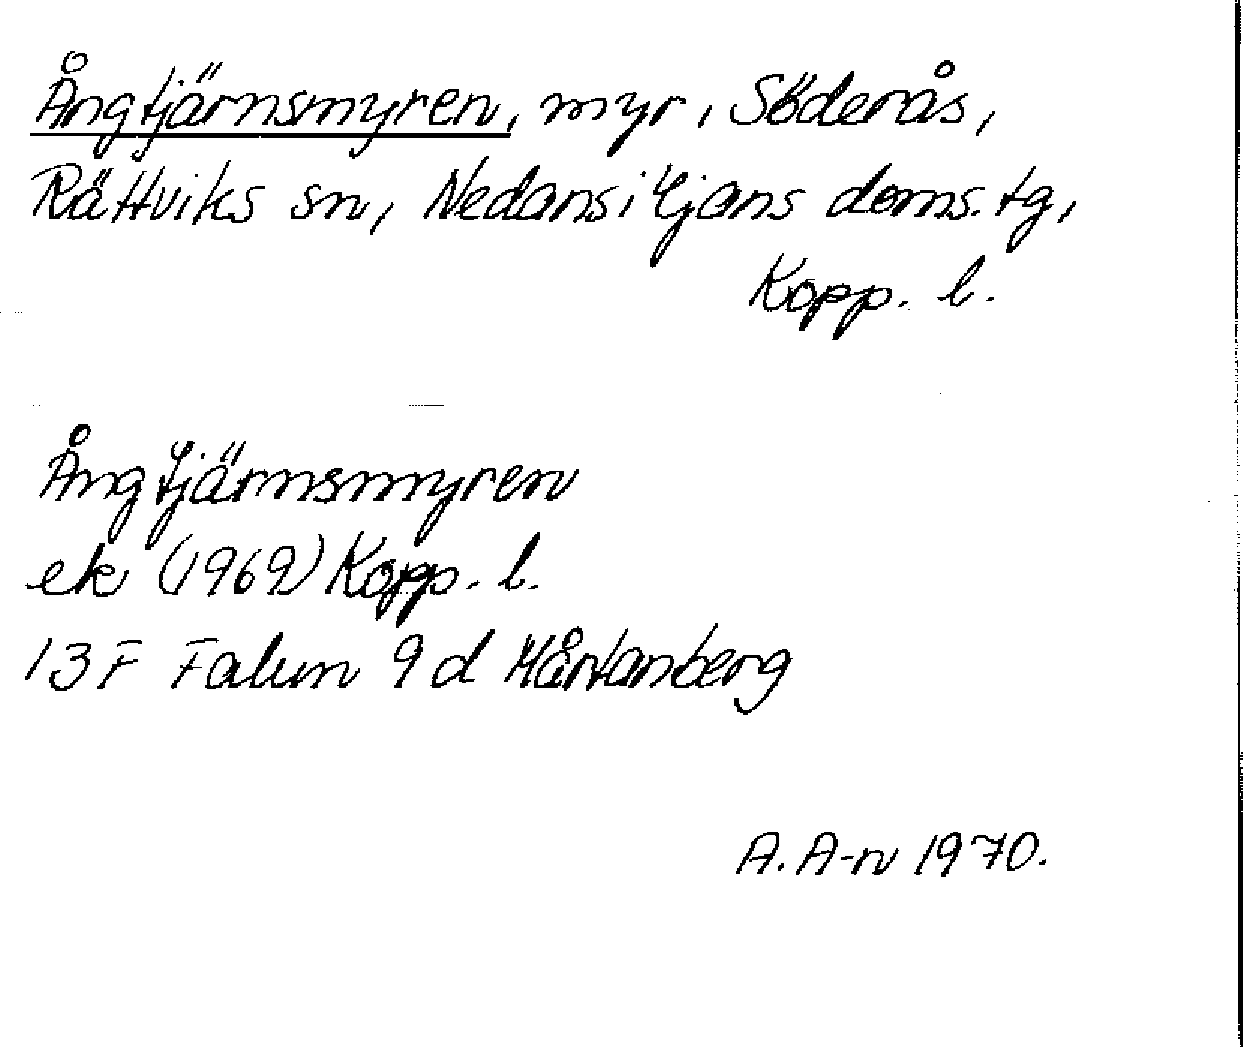 Ångtjärnsmyren, myr, Söderås,
Rättviks sn, Nedansiljans doms. tg,
Kopp. l.
Ångtjärnsmyren
ek (1969) Kopp. l.
13F Falun 9d Mårtanberg
A. A-n 1970.